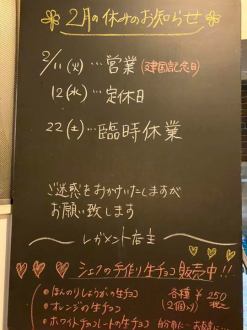 2月の休みのお知らせ
2/11(火)…営業(建国記念日)
12(水)…定休日
22(土)…臨時休業
ご迷惑をおかけいたしますが
お願い致します
レガメント店主
シェフの手作り生チョコ販売中!!
ほんのりしょうがの生チョコ
各種 ¥250
オレンジの生チョコ
(2個入)
ホワイトチョコレートの生チョコ